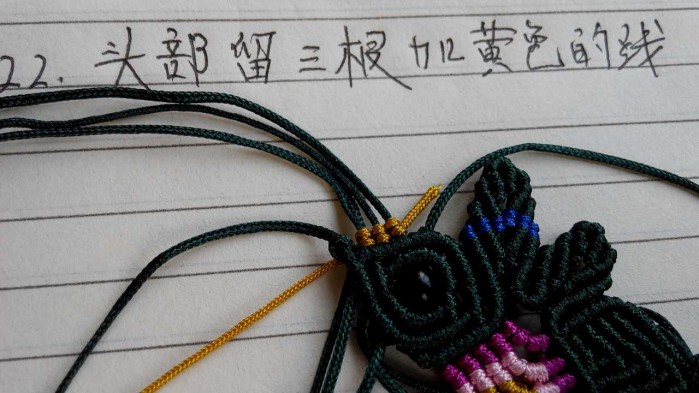 22. 头部留三根加黄色的线